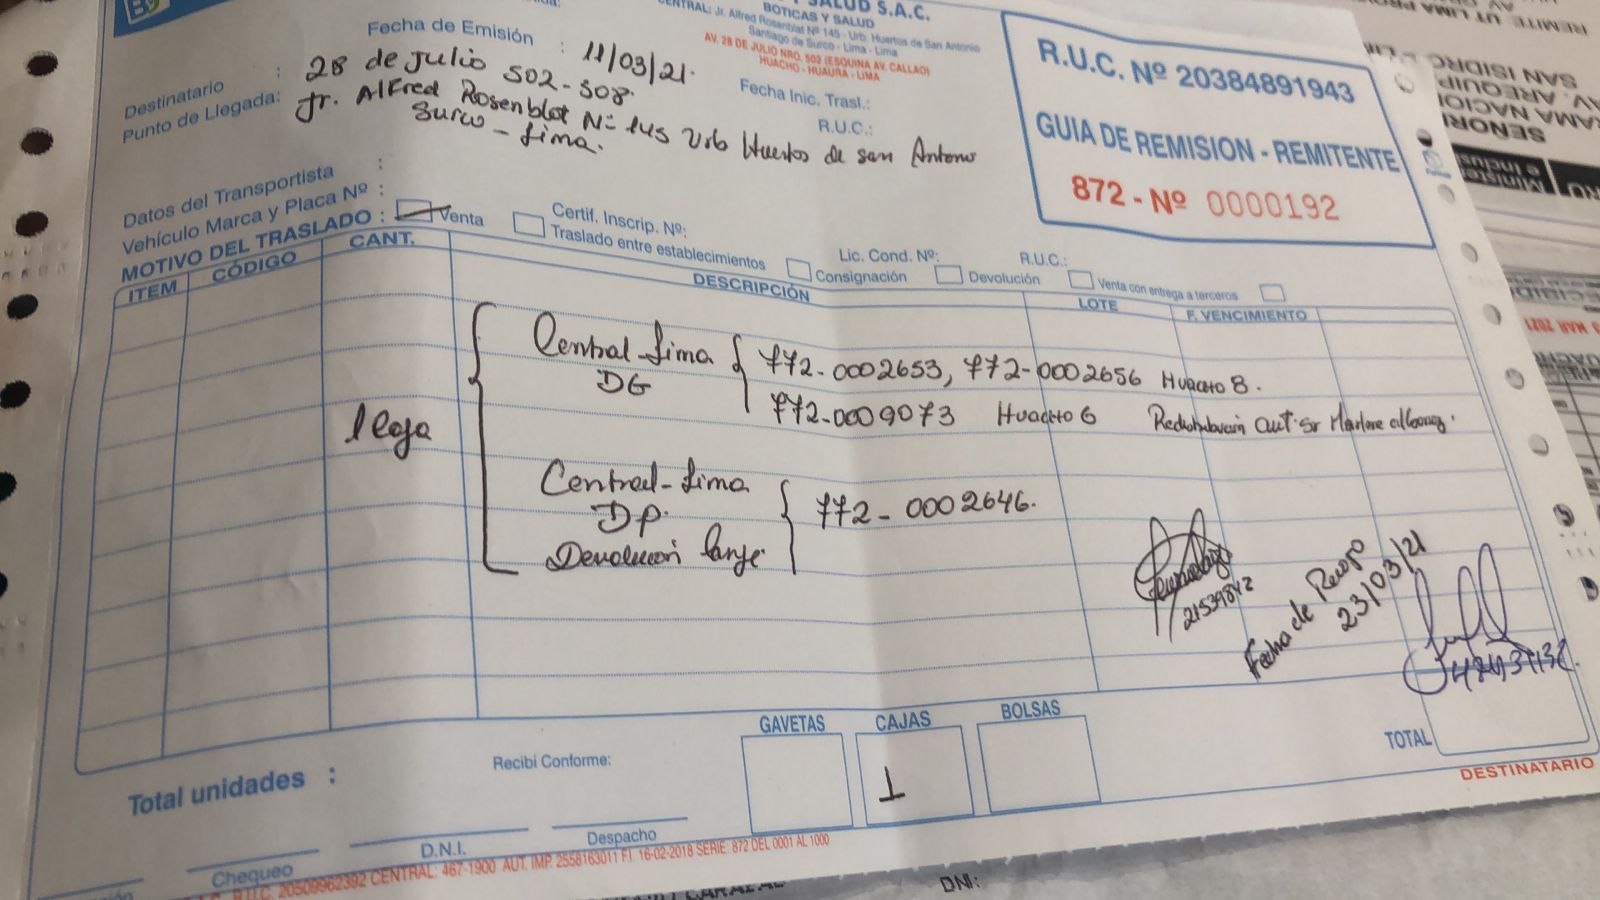 SALUD S.A.C.
BOTICAS Y SALUD
CENTRAL: Jr. Alfred Rosenblat Nº 145 - Urb. Huertos de San Antonio
Santiago de Surco - Lima - Lima
AV. 28 DE JULIO NRO. 502 (ESQUINA AV. CALLAO)
HUACHO - HUAURA - LIMA
Fecha de Emisión : 11/03/21.
Fecha Inic. Trasl.:
R.U.C.:
Destinatario : 28 de Julio 502-508.
Punto de Llegada: Jr. Alfred Rosenblot Nº 145 Urb Huertos de san Antonio
Surco - Lima.
R.U.C. Nº 20384891943
GUIA DE REMISION - REMITENTE
872 - Nº 0000192
Datos del Transportista :
Vehículo Marca y Placa Nº :
Certif. Inscrip. Nº:
Lic. Cond. Nº:
R.U.C.:
MOTIVO DEL TRASLADO : Venta Traslado entre establecimientos Consignación Devolución Venta con entrega a terceros
ITEM CÓDIGO CANT. DESCRIPCIÓN LOTE F. VENCIMIENTO
Central Lima 772-0002653, 772-0002656 Huacho 8.
DG
772-0009073 Huacho 6
1 Caja
Central - Lima
DP. 772-0002646.
Devolución Canje.
21539842
Fecha de Recojo
23/03/21
GAVETAS CAJAS BOLSAS
1
TOTAL
Total unidades :
Recibí Conforme:
Chequeo D.N.I. Despacho
DESTINATARIO
R.U.C. 20509962392 CENTRAL: 467-1900 AUT. IMP. 2558163011 F.I. 16-02-2018 SERIE: 872 DEL 0001 AL 1000
DNI: